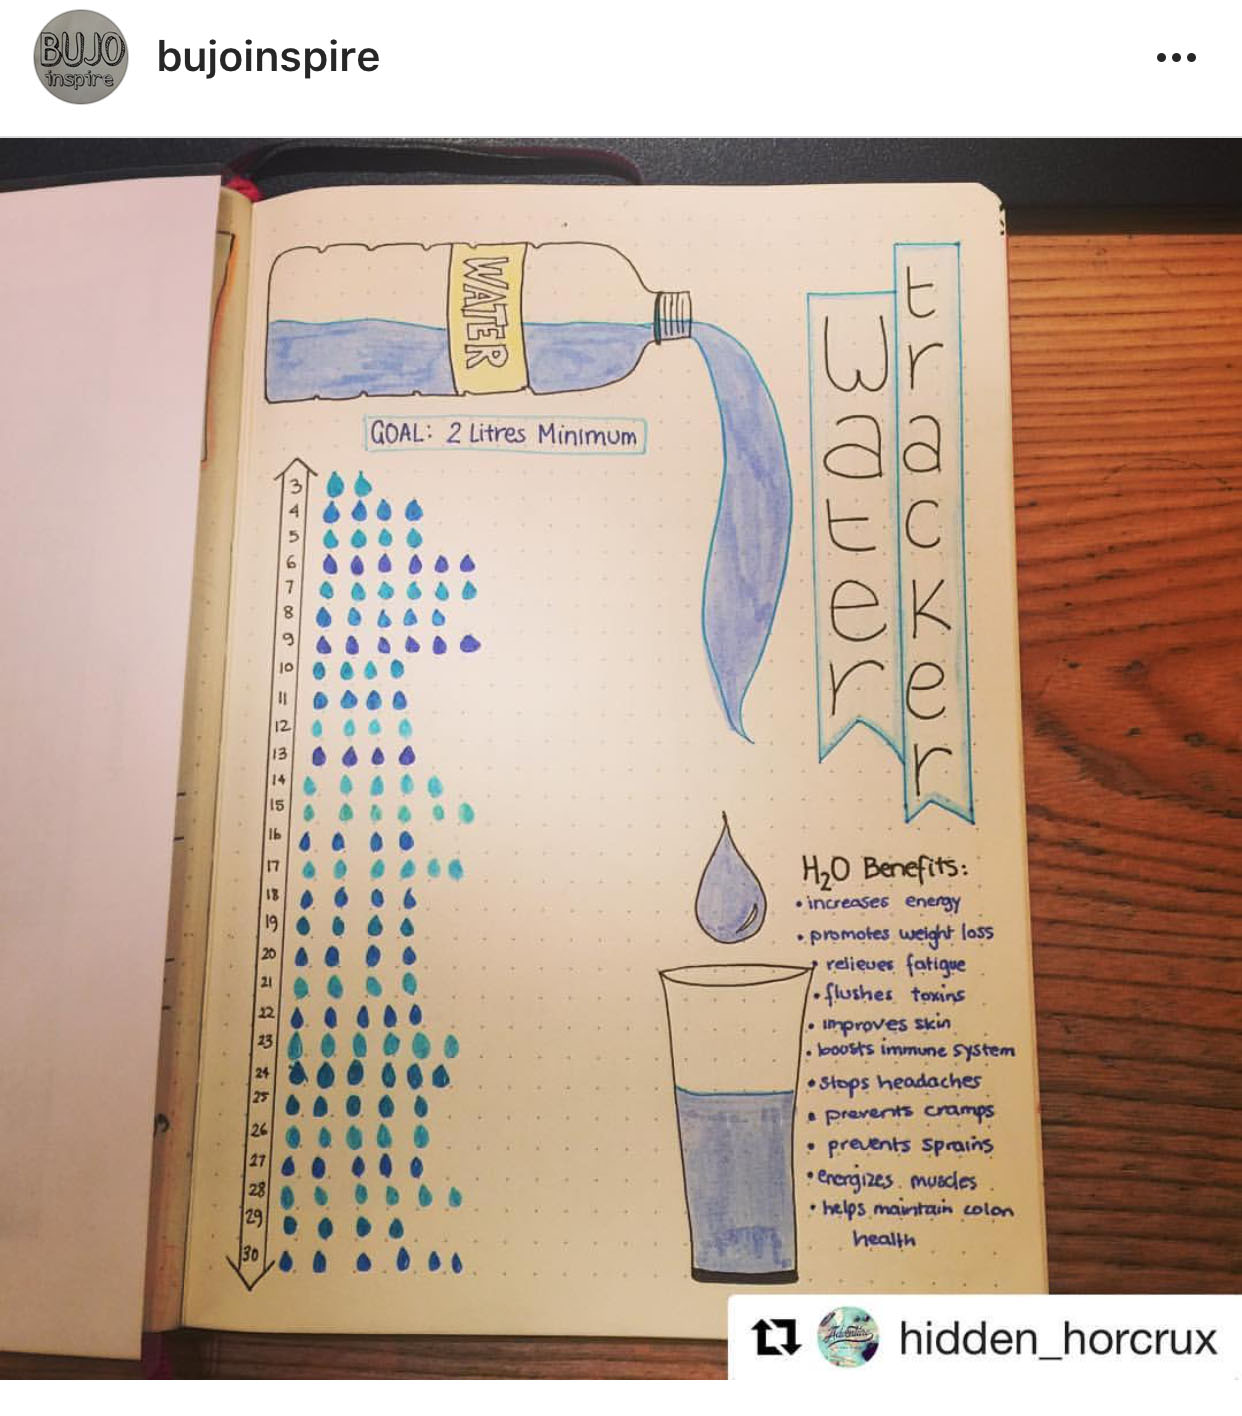 BUJO
inspire
bujoinspire
WATER
water
tracker
GOAL: 2 Litres Minimum
3
4
5
6
7
8
9
10
11
12
13
14
15
16
17
18
19
20
21
22
23
24
25
26
27
28
29
30
H₂O Benefits:
• increases energy
• promotes weight loss
• relieves fatigue
• flushes toxins
• improves skin
• boosts immune system
• stops headaches
• prevents cramps
• prevents sprains
• energizes muscles
• helps maintain colon
health
Adventure
hidden_horcrux